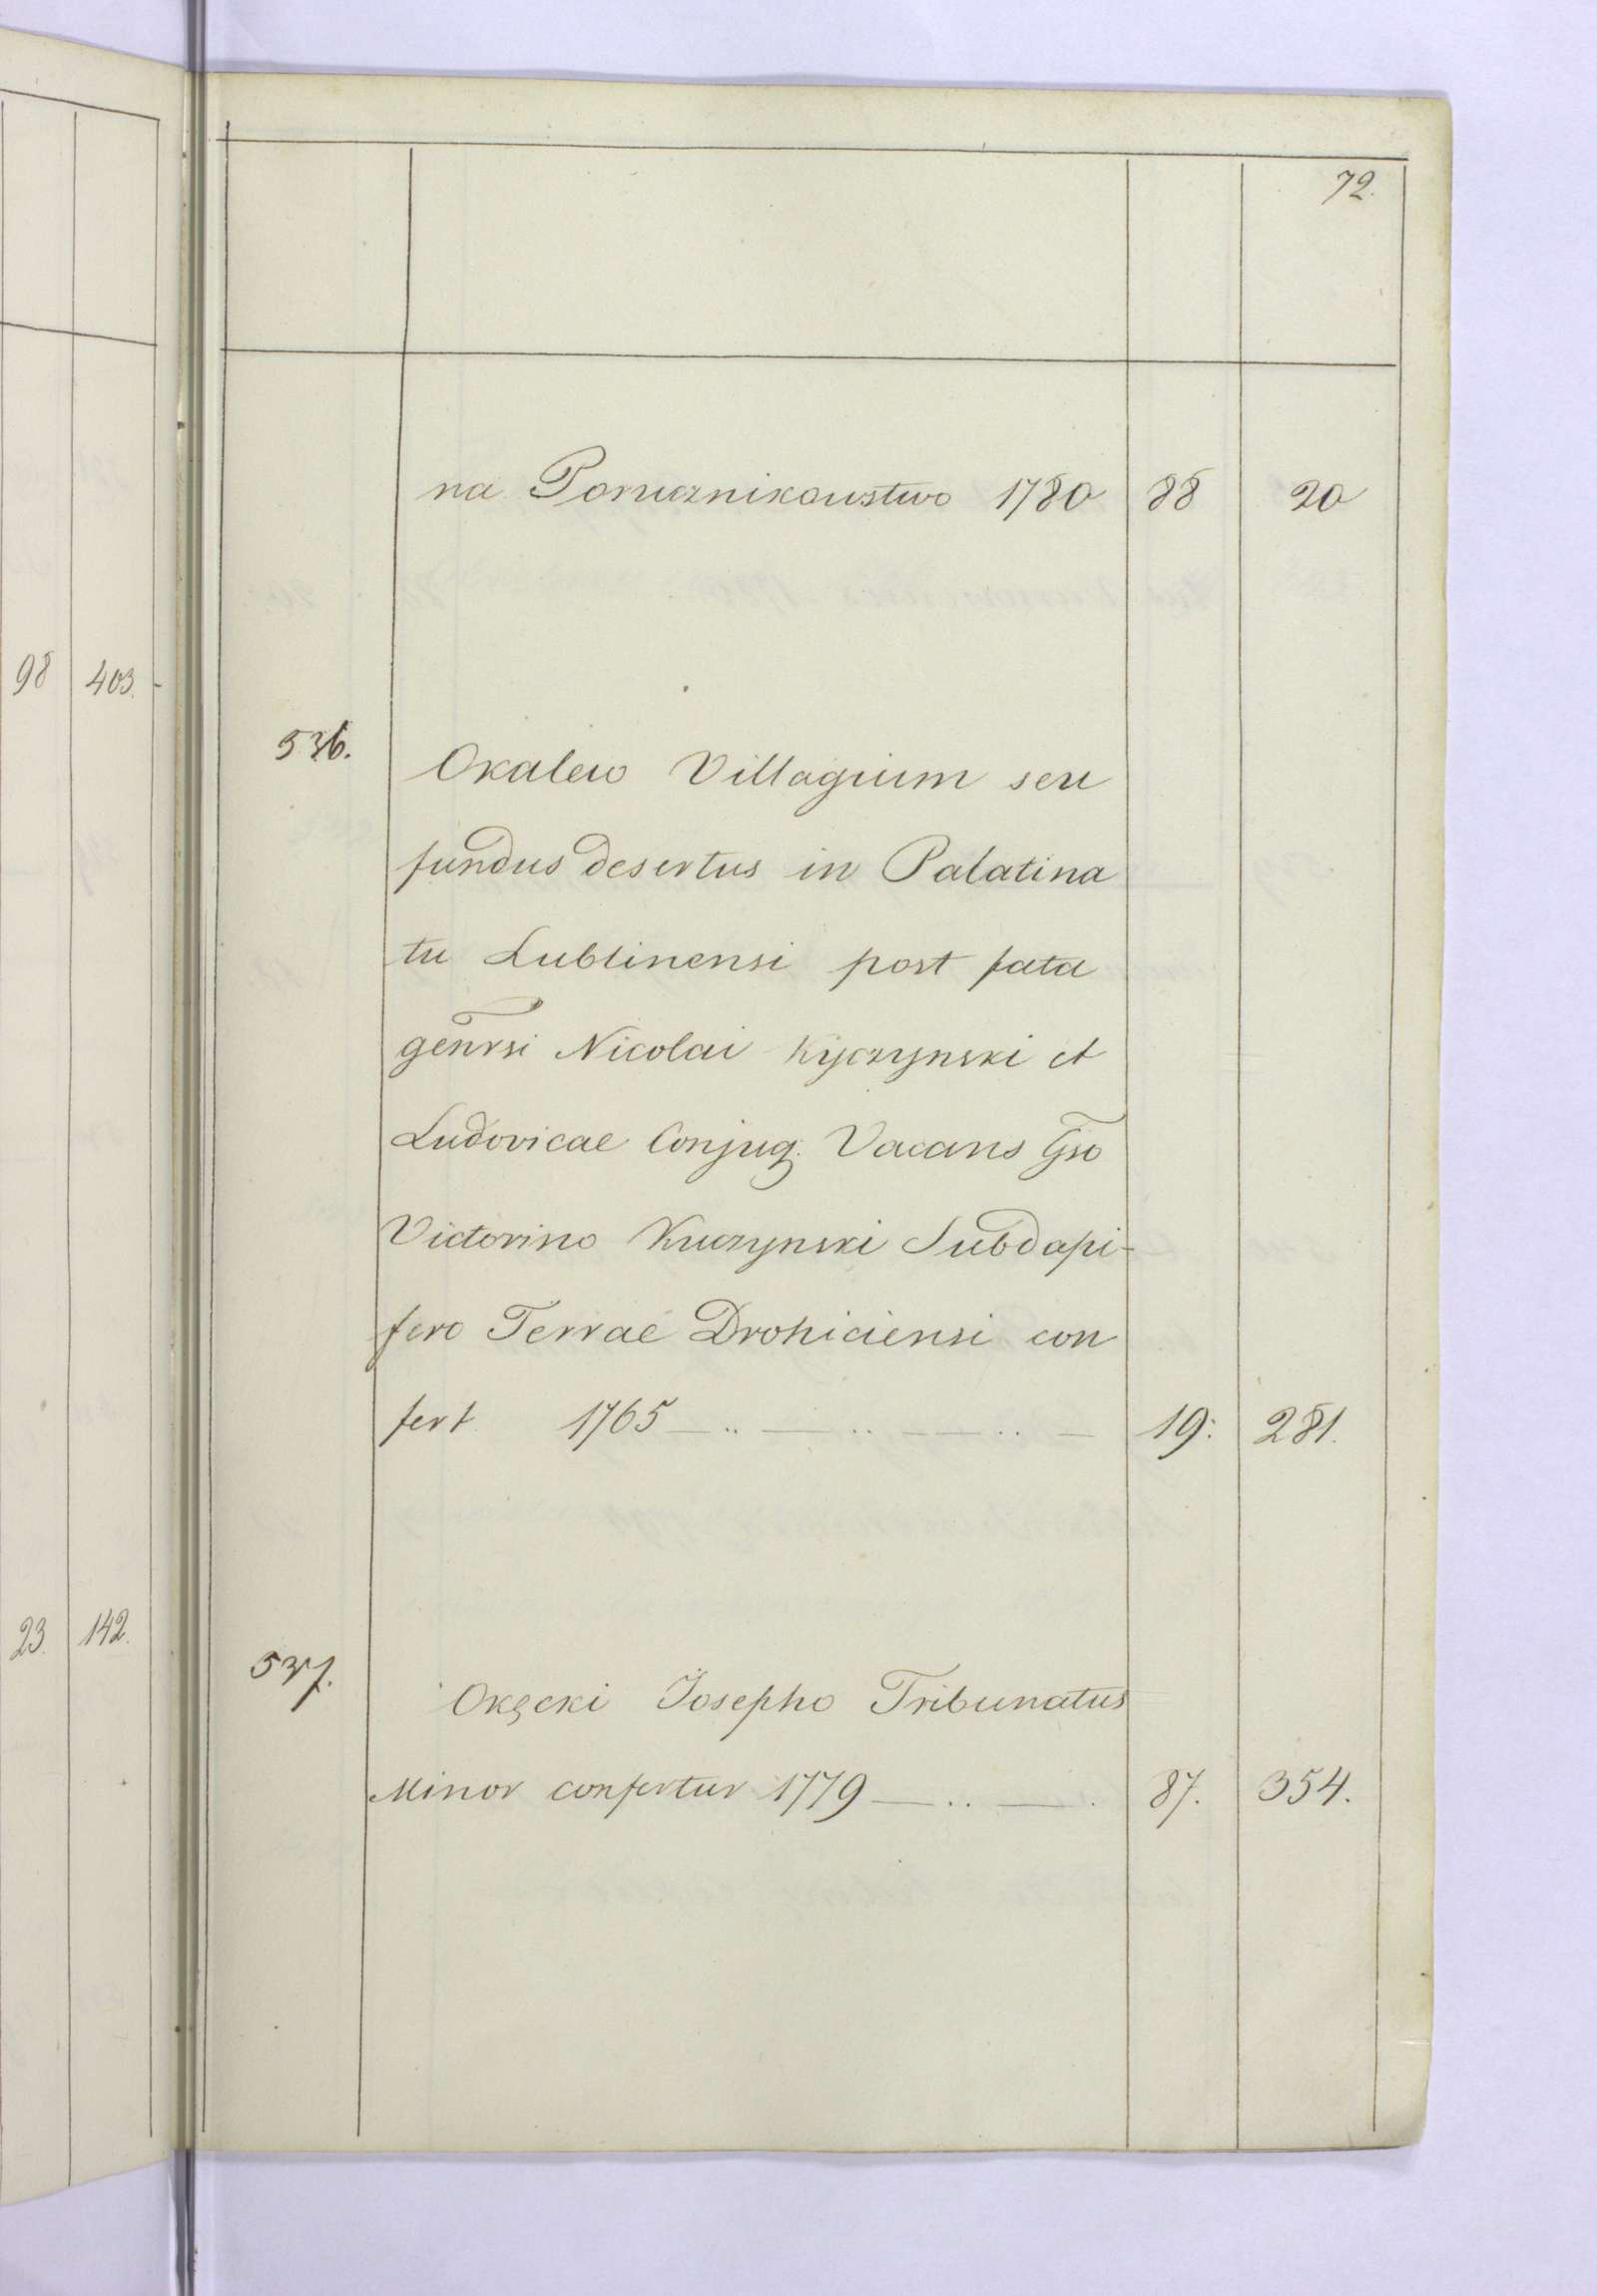 72.
na Porucznikowstwo 1780 88 20
98 403.
536.
Okalew Villagium seu
fundus desertus in Palatina
tu Lublinensi post fata
genrsi Nicolai Kyczynski et
Ludovicae Conjug. Vacans Gso
Victorino Kuczynski Subdapi-
fero Terrae Drohiciensi con
fert 1765 19. 281.
23. 142.
537.
Okęcki Josepho Tribunatus
Minor confertur 1779 87. 354.